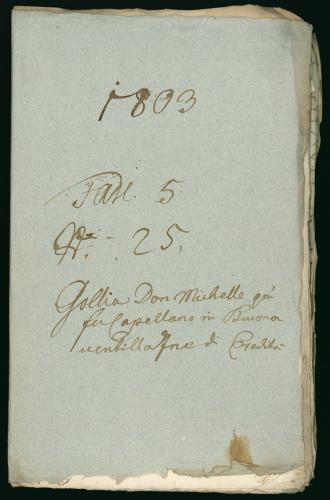 1803
Fasc. 5
N. 25,
Gollia Don Michelle qm
fu Capellano in Buona
di Eredità